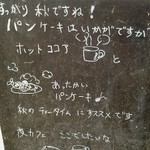 すっかり 秋ですね!
パンケーキはいかがですか
ホットココア
と
あったかい
パンケーキ♪
秋のティータイムにオススメです